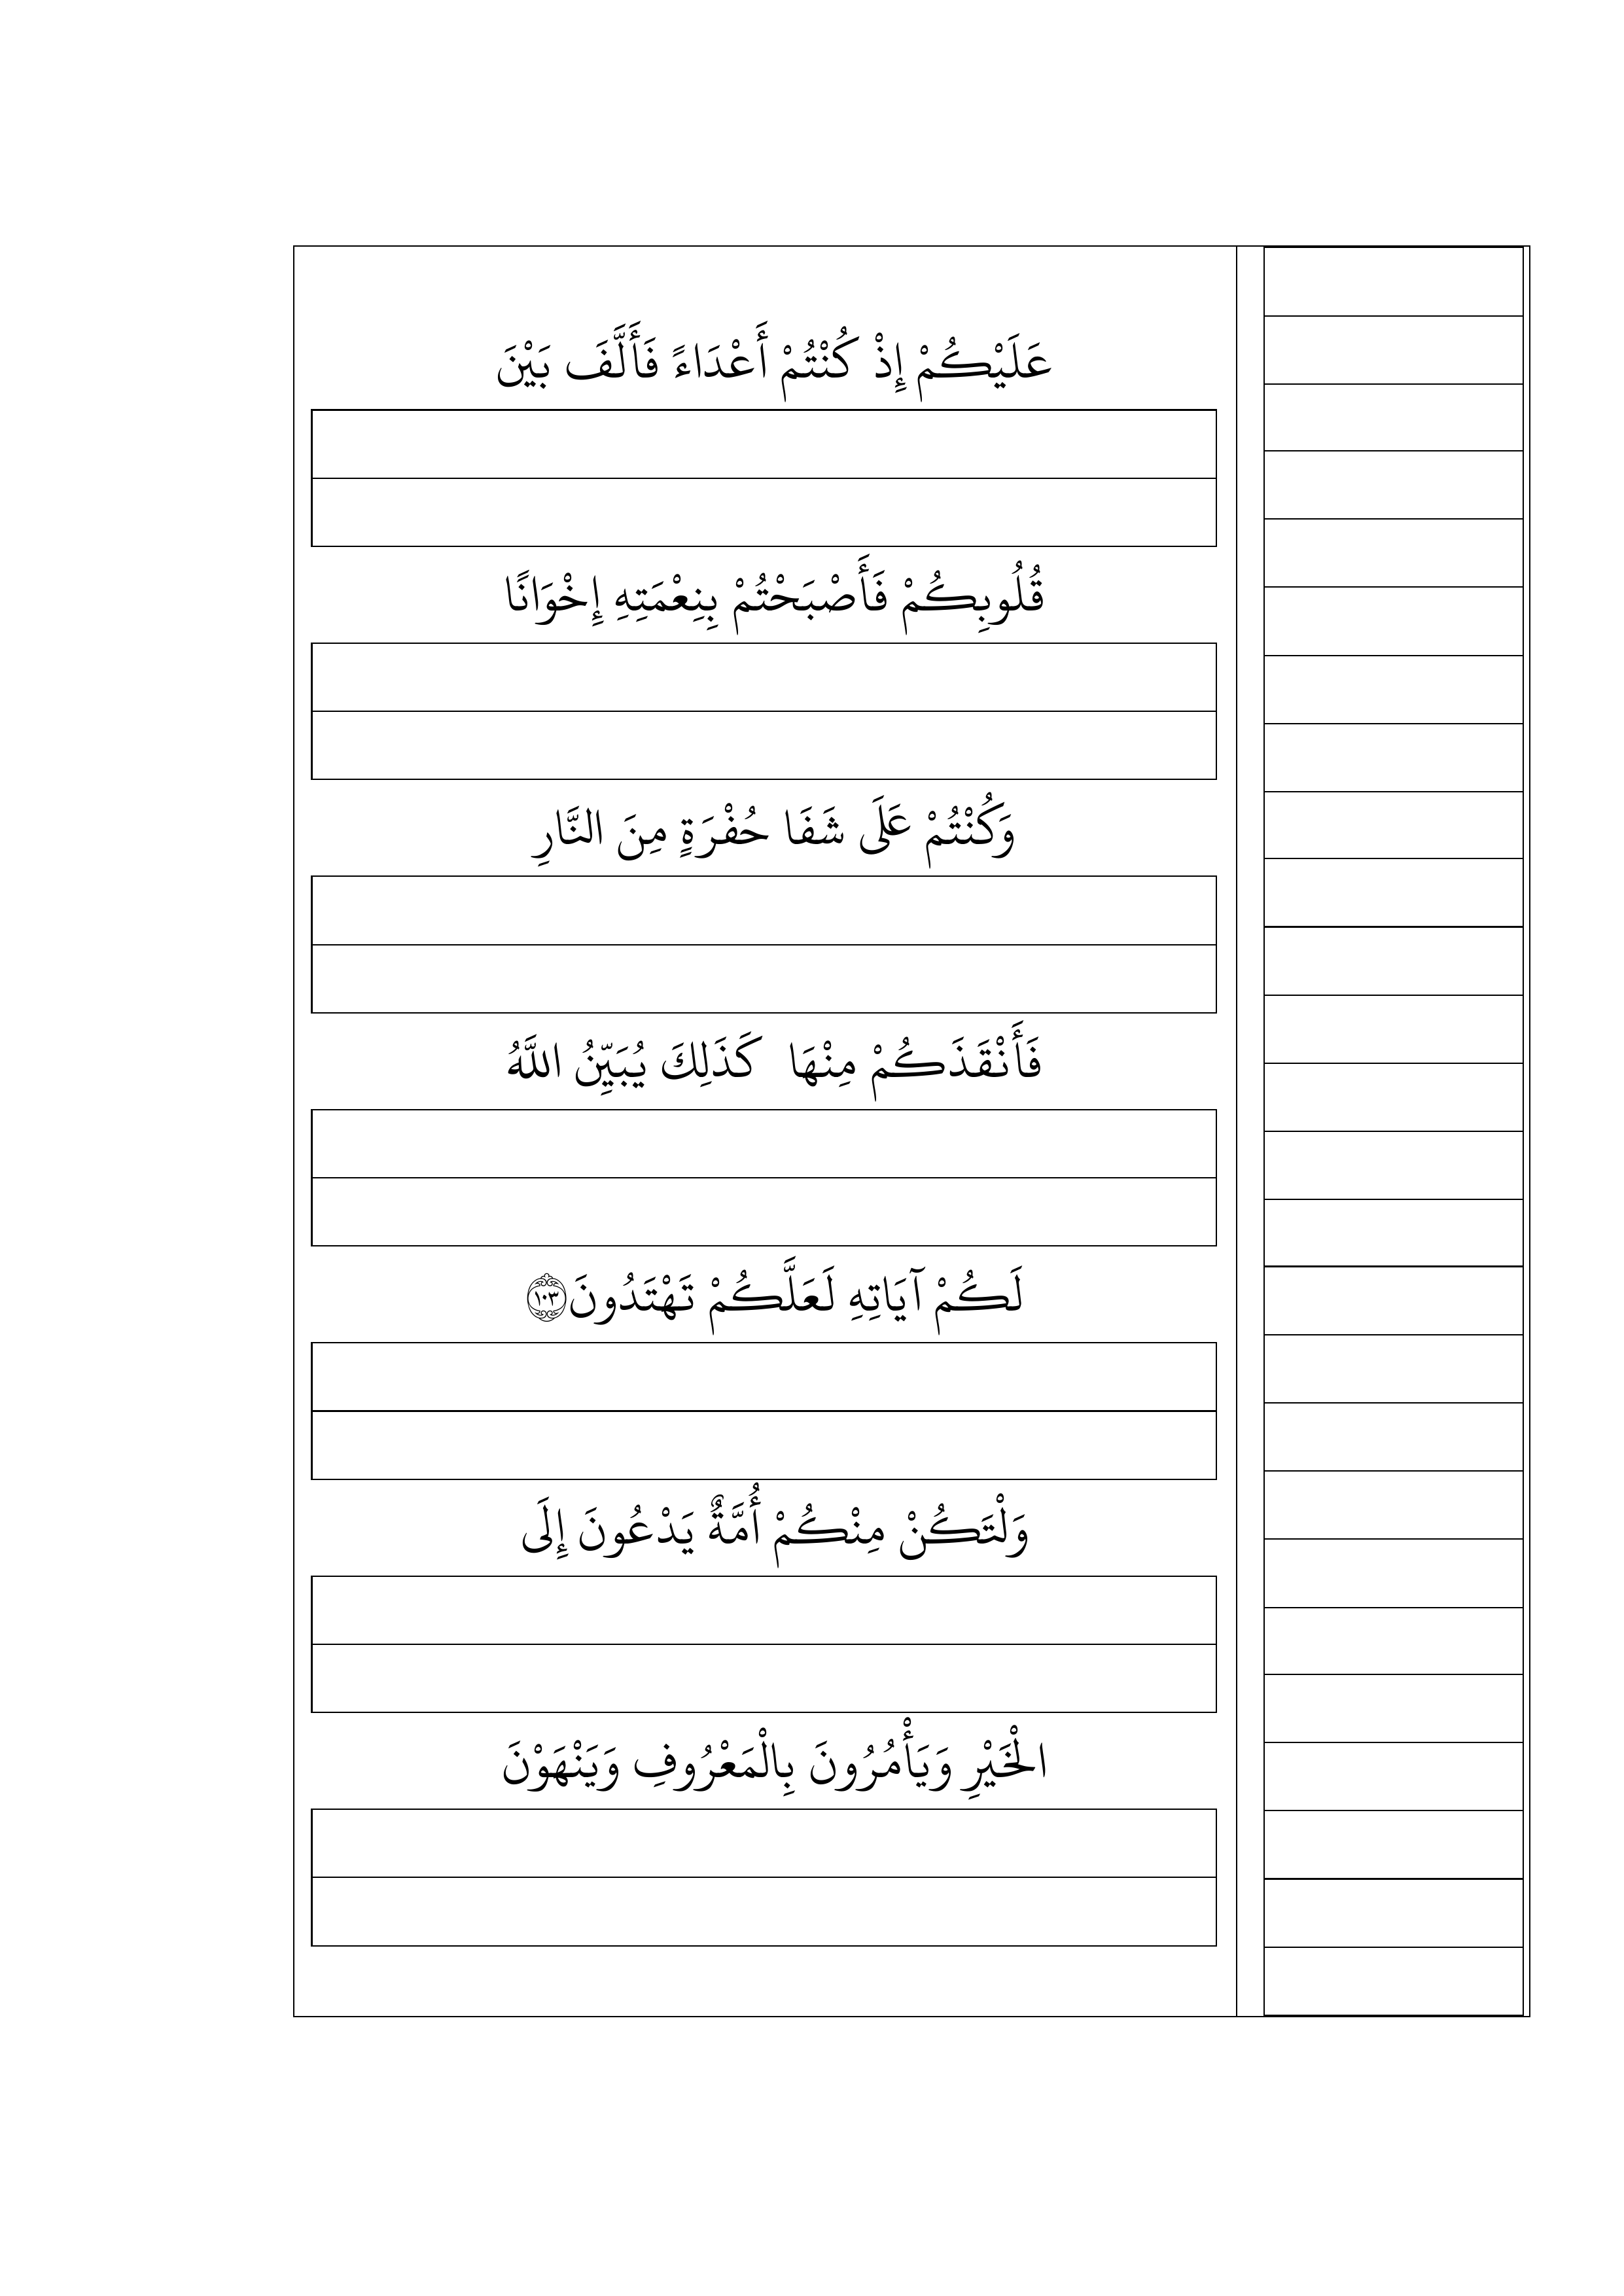 عَلَيْكُمْ إِذْ كُنْتُمْ أَعْدَاءً فَأَلَّفَ بَيْنَ
قُلُوبِكُمْ فَأَصْبَحْتُمْ بِنِعْمَتِهِ إِخْوَانًا
وَكُنْتُمْ عَلَى شَفَا حُفْرَةٍ مِنَ النَّارِ
فَأَنْقَذَكُمْ مِنْهَا كَذَلِكَ يُبَيِّنُ اللَّهُ
لَكُمْ آيَاتِهِ لَعَلَّكُمْ تَهْتَدُونَ ۝١٠٣
وَلْتَكُنْ مِنْكُمْ أُمَّةٌ يَدْعُونَ إِلَى
الْخَيْرِ وَيَأْمُرُونَ بِالْمَعْرُوفِ وَيَنْهَوْنَ